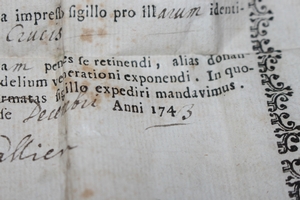 a impresso sigillo pro illarum identi-
Crucis
am penes se retinendi, alias donan
delium venerationi exponendi. In quo-
rmatas sigillo expediri mandavimus.
se Anni 1743